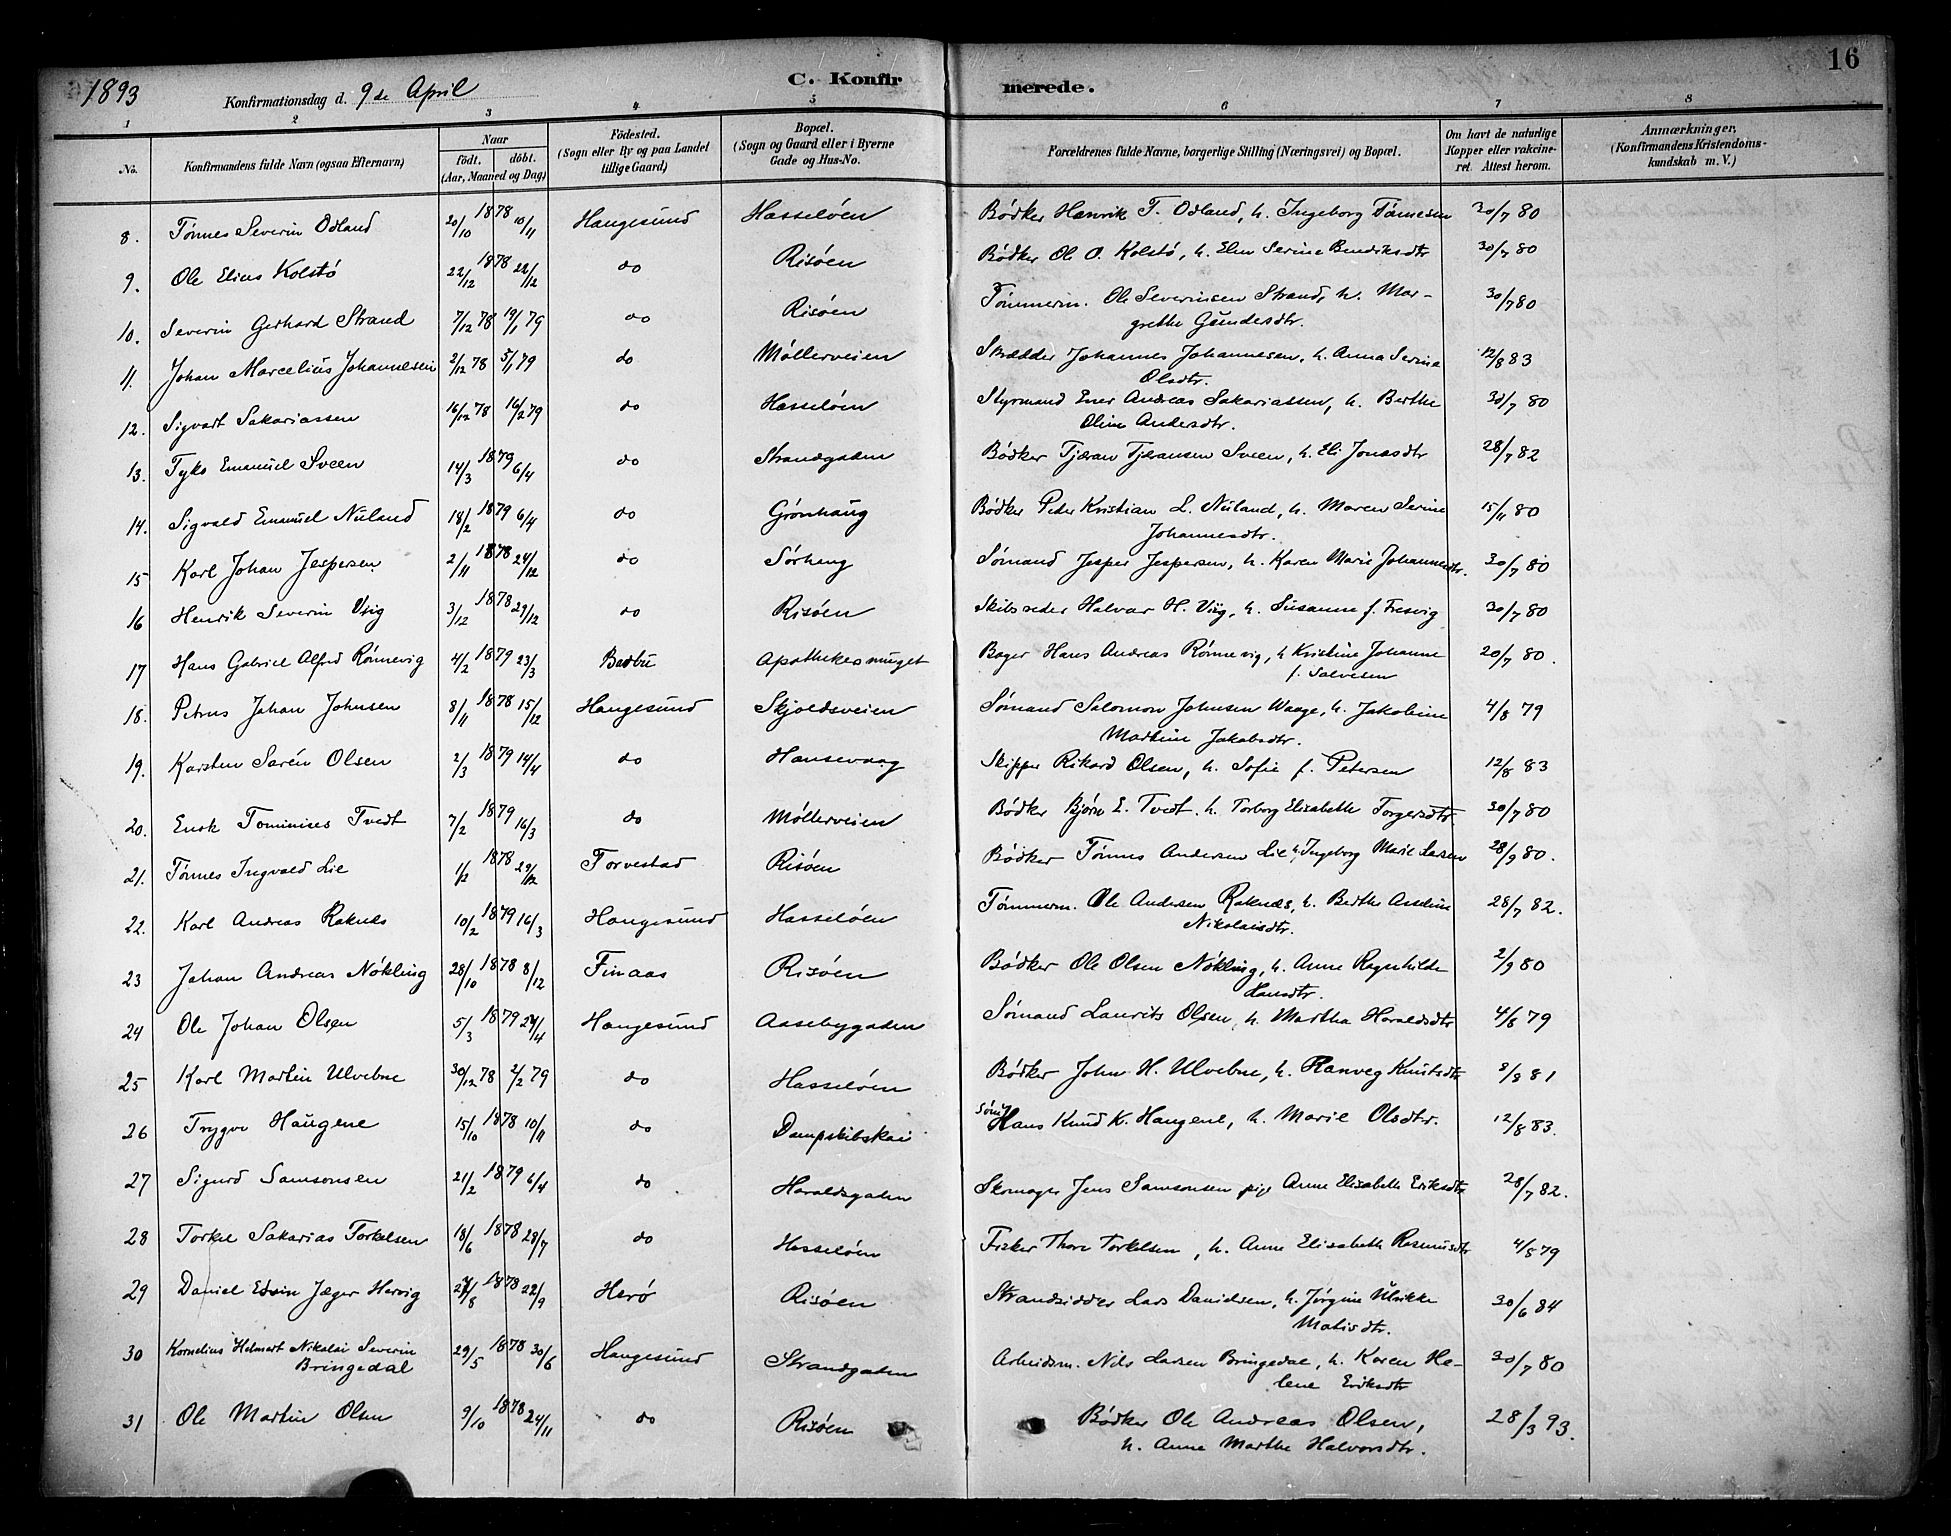 1893
Konfirmationsdag d. 9de April
C. Konfirmerede.
16
1 2 3 4 5 6 7 8
No.
Konfirmandens fulde Navn (ogsaa Efternavn)
Naar
født. døbt.
(Aar, Maaned og Dag)
Födested.
(Sogn eller By og paa Landet
tillige Gaard)
Bopæl.
(Sogn og Gaard eller i Byerne
Gade og Hus-No.
Forældrenes fulde Navne, borgerlige Stilling (Næringsvei) og Bopæl.
Om havt de naturlige
Kopper eller vakcine-
ret. Attest herom.
Anmærkninger,
(Konfirmandens Kristendoms-
kundskab m. V.)
8. Tønnes Severin Odland 20/10 1878 10/11 Haugesund Hasseløen Bødker Henrik T. Odland, h. Ingeborg Tønnesen 30/7 80
9. Ole Elias Kolstø 22/12 1878 22/12 do Risøen Bødker Ol O. Kolstø, h. Elen Serine Bendiksdtr 30/7 80
10. Severin Gerhard Strand 7/12 78 19/1 79 do Risøen Tømmerm. Ole Severinsen Strand, h. Mar-
grethe Gundersdtr. 30/7 80
11. Johan Marcelius Johannesen 2/12 78 5/1 79 do Møllerveien Skrædder Johannes Johannesen, h. Anna Serina
Olsdtr. 12/8 83
12. Sigvart Sakariassen 16/12 78 16/2 79 do Hasseløen Styrmand Ener Andreas Sakariassen, h. Berthe
Oline Andersdtr. 30/7 80
13. Tyko Emanuel Sveen 14/3 1879 6/4 do Strandgaden Bødker Tjæran Tjæransen Sveen, h. Eli Jonasdtr 28/7 82
14. Sigvald Emanuel Nuland 18/2 1879 6/4 do Grønhaug Bødker Peder Kristian L. Nuland, h. Maren Serine
Johannesdtr. 15/11 80
15 Karl Johan Jespersen 2/11 1878 24/12 do Sørhaug Sømand Jesper Jespersen, h. Karen Marie Johannesdtr. 30/7 80
16 Henrik Severin Viig 3/12 1878 29/12 do Risøen Skibsreder Halvar H. Viig, h. Susanne f. Fresvig 30/7 80
17 Hans Gabriel Alfred Rønnevig 4/2 1879 23/3 Bødbu Apothekersmuget Bager Hans Andreas Rønnevig, h Kristine Johanne
f. Salvesen 20/7 80.
18. Petrus Johan Johnsen 8/11 1878 15/12 Haugesund Skjoldsveien Sømand Salomon Johnsen Waage, h. Jakobine
Martine Jakobsdtr. 4/8 79
19. Karsten Søren Olsen 2/3 1879 14/4 do Hansevaag Skipper Rikard Olsen, h. Sofie f. Petersen 12/8 83
20. Enok Tominises Tvedt 7/2 1879 16/3 do Møllerveien Bødker Bjørn E. Tvedt. h. Torborg Elisabeth Torgersdtr. 30/7 80
21. Tønnes Ingvald Lie 1/2 1878 29/12 Torvestad Risøen Bødker Tønnes Andersen Lie h. Ingeborg Marie Larsen 28/9 80.
22. Karl Andreas Raknes 10/2 1879 16/3 Haugesund Hasseløen Tømmerm. Ole Andersen Raknæs, h. Berthe Aseline
Nikolaisdtr. 28/7 82.
23 Johan Andreas Nøkling 28/10 1878 8/12 Finaas Risøen Bødker Ole Olsen Nøkling, h. Anne Ragnhilde
Hansdtr. 2/9 80
24 Ole Johan Olsen 5/3 1879 27/4 Haugesund Aasebygaden Sømand Laurits Olsen, h. Martha Haraldsdtr 4/8 79
25 Karl Martin Ulvebne 30/12 78 2/2 79 do Hasseløen Bødker John H. Ulvebne, h. Ranveg Knutsdtr 8/8 81
26 Trygve Haugene 15/10 1878 10/11 do Dampskibskai Søm. Hans Knud K. Haugene, h. Marie Olsdtr. 12/8 83.
27 Sigurd Samsonsen 21/2 1879 6/4 do Haraldsgaden Skomager Jens Samsonsen pig Anne Elisabeth Eriksdtr 28/7 82.
28 Torkel Sakarias Torkelsen 18/6 1878 28/7 do Hasseløen Fisker Thore Torkelsen, h. Anne Elisabeth Rasmusdtr 4/8 79
29 Daniel Edvin Jæger Hervig 24/8 1878 22/9 Herø Risøen Strandsidder Lars Danielsen, h. Jørgine Ulrikke
Matisdtr. 30/6 84
30 Kornelius Helmert Nikolai Severin
Bringedal 29/5 1878 30/6 Haugesund Strandgaden Arbeidsm. Nils Larsen Bringedal, h. Karen He-
lene Eriksdtr 30/7 80
31 Ole Martin Olsen 9/10 1878 24/11 do Risøen Bødker Ole Andreas Olsen,
h. Anne Marthe Halvorsdtr. 28/3 93.